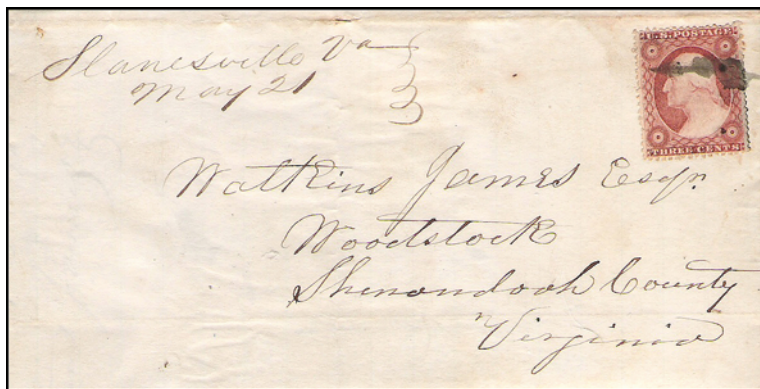 Slanesville Va
May 21
U.S. POSTAGE
THREE CENTS
Watkins James Esqr.
Woodstock
Shenandoah County
Virginia